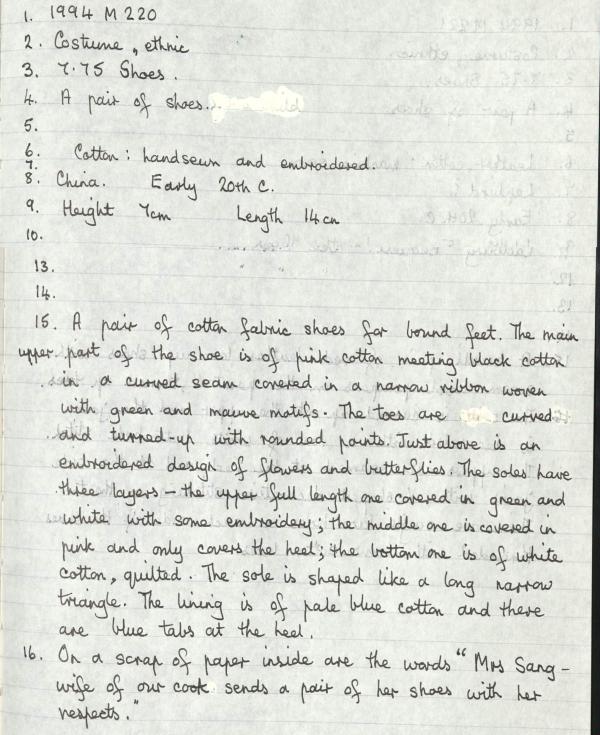 1. 1994 M 220
2. Costume, ethnic
3. 7.75 Shoes.
4. A pair of shoes.
5.
6. Cotton: handsewn and embroidered.
7.
8. China. Early 20th C.
9. Height 7cm Length 14cm
10.
13.
14.
15. A pair of cotton fabric shoes for bound feet. The main
upper part of the shoe is of pink cotton meeting black cotton
in a curved seam covered in a narrow ribbon woven
with green and mauve motifs. The toes are curved
and turned-up with rounded points. Just above is an
embroidered design of flowers and butterflies. The soles have
three layers – the upper full length one covered in green and
white with some embroidery; the middle one is covered in
pink and only covers the heel; the bottom one is of white
cotton, quilted. The sole is shaped like a long narrow
triangle. The lining is of pale blue cotton and there
are blue tabs at the heel.
16. On a scrap of paper inside are the words "Mrs Sang –
wife of our cook sends a pair of her shoes with her
respects."